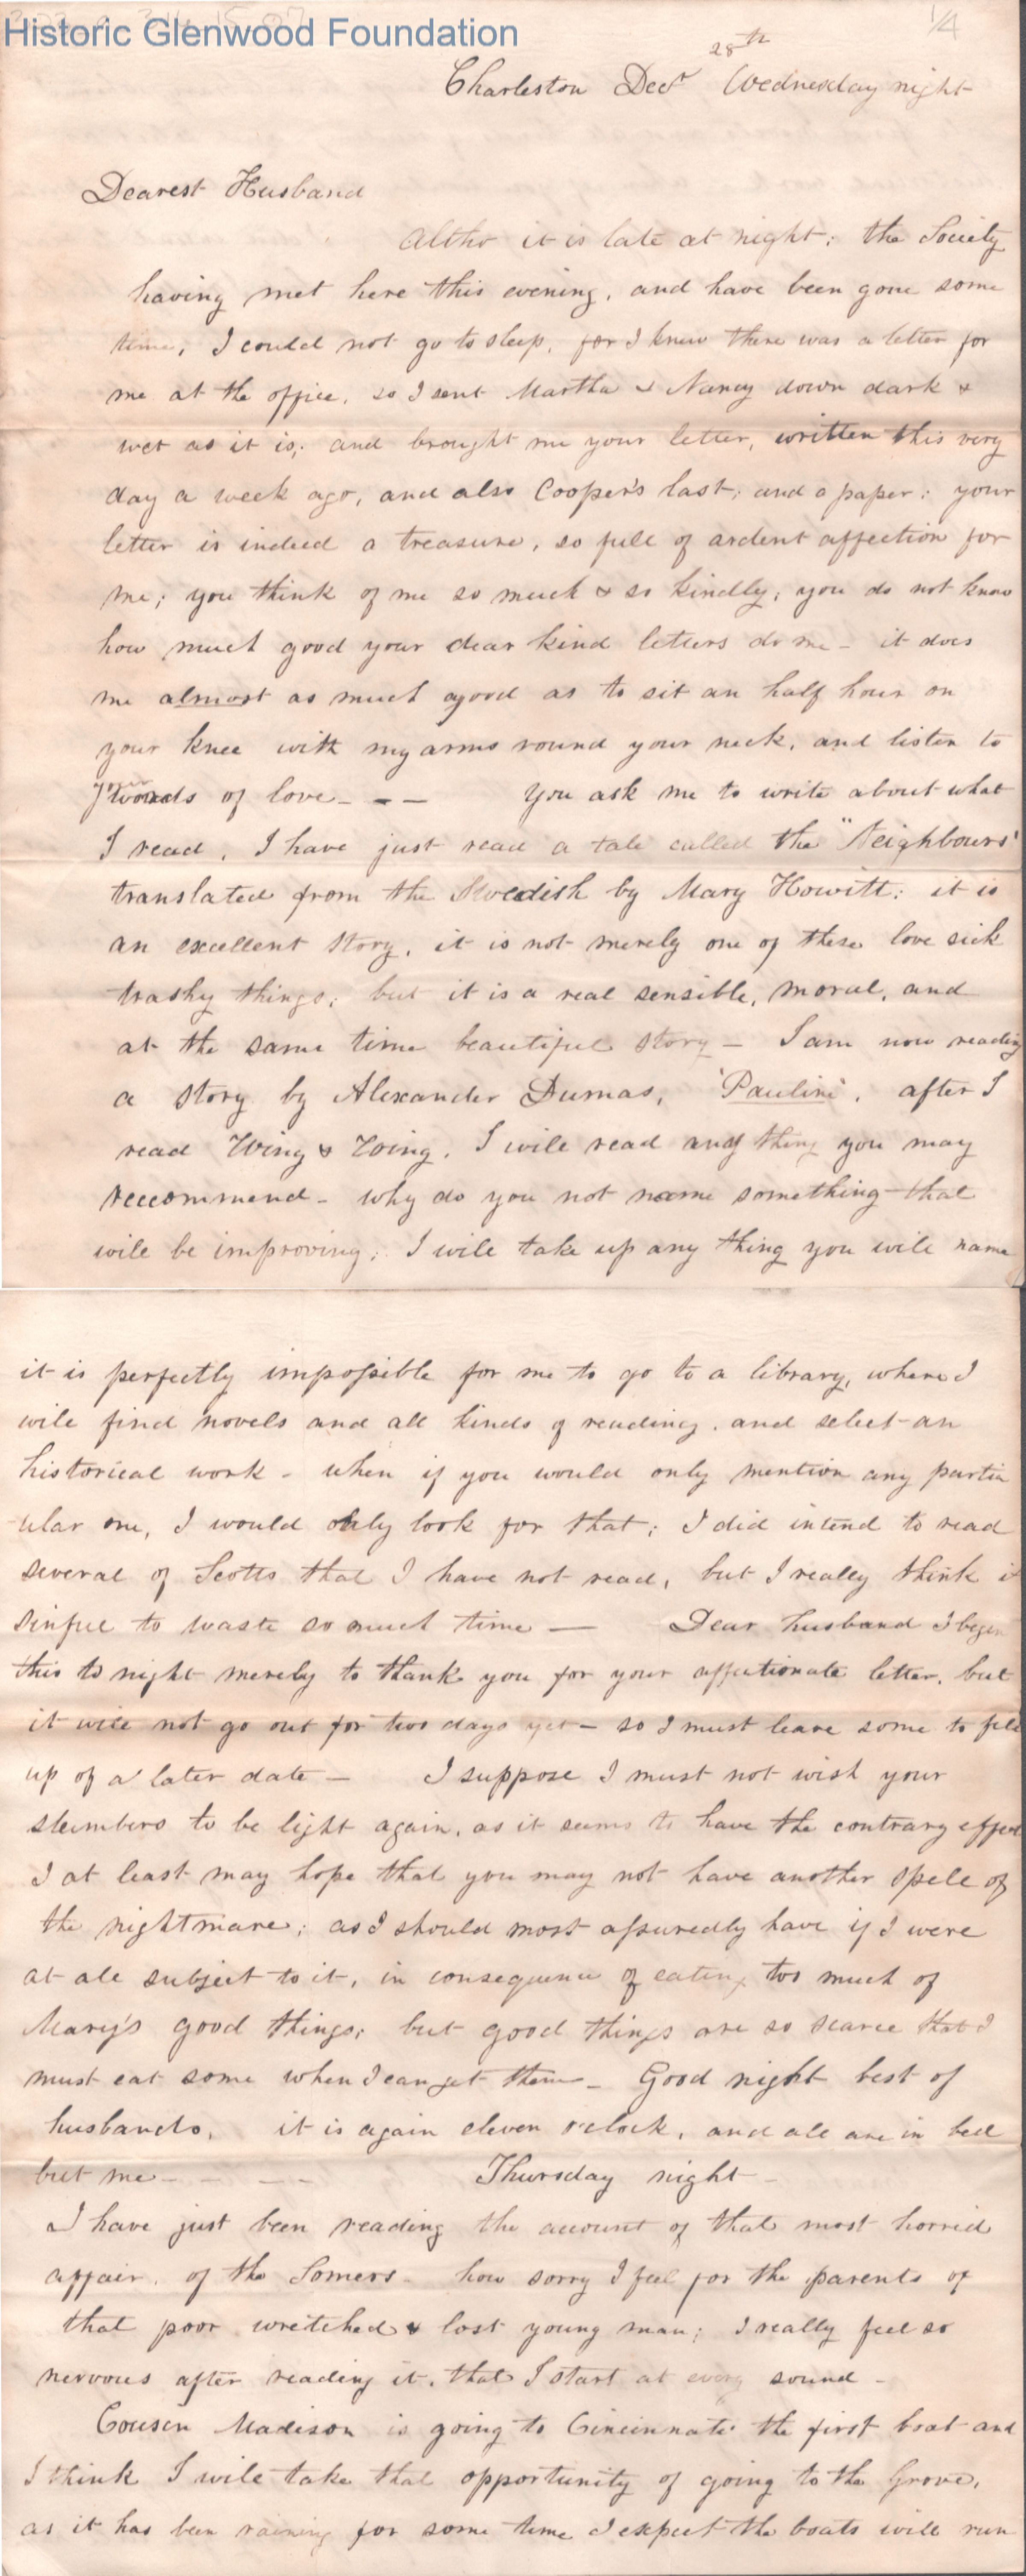 Historic Glenwood Foundation
1/4
28th
Charleston Decr Wednesday night
Dearest Husband
Altho it is late at night; the Society
having met here this evening, and have been gone some
time, I could not go to sleep, for I knew there was a letter for
me at the office, so I sent Martha & Nancy down dark &
wet as it is; and brought me your letter, written this very
day a week ago, and also Cooper's last; and a paper; your
letter is indeed a treasure, so full of ardent affection for
me; you think of me so much & so kindly, you do not know
how much good your dear kind letters do me - it does
me almost as much good as to sit an half hour on
your knee with my arms round your neck, and listen to
your words of love - - - You ask me to write about what
I read, I have just read a tale called the "Neighbours"
translated from the Swedish by Mary Howitt: it is
an excellent story, it is not merely one of these love sick
trashy things; but it is a real sensible, moral, and
at the same time beautiful story - I am now reading
a story by Alexander Dumas, 'Pauline'. after I
read Wing & Wing, I will read any thing you may
reccommend - why do you not name something that
will be improving; I will take up any thing you will name
it is perfectly impossible for me to go to a library, where I
will find novels and all kinds of reading, and select an
historical work - when if you would only mention any partic
ular one, I would only look for that; I did intend to read
several of Scotts that I have not read, but I really think it
sinful to waste so much time — Dear husband I begin
this to night merely to thank you for your affectionate letter, but
it will not go out for two days yet - so I must leave some to fill
up of a later date — I suppose I must not wish your
slumbers to be light again, as it seems to have the contrary effect
I at least may hope that you may not have another spell of
the nightmare; as I should most assuredly have if I were
at all subject to it, in consequence of eating too much of
Mary's good things; but good things are so scarce that I
must eat some when I can get them - Good night best of
husbands, it is again eleven oclock, and all are in bed
but me - - - - Thursday night -
I have just been reading the account of that most horrid
affair, of the Somers - how sorry I feel for the parents of
that poor wretched & lost young man; I really feel so
nervous after reading it, that I start at every sound -
Cousin Madison is going to Cincinnati the first boat and
I think I will take that opportunity of going to the Grove,
as it has been raining for some time I expect the boats will run